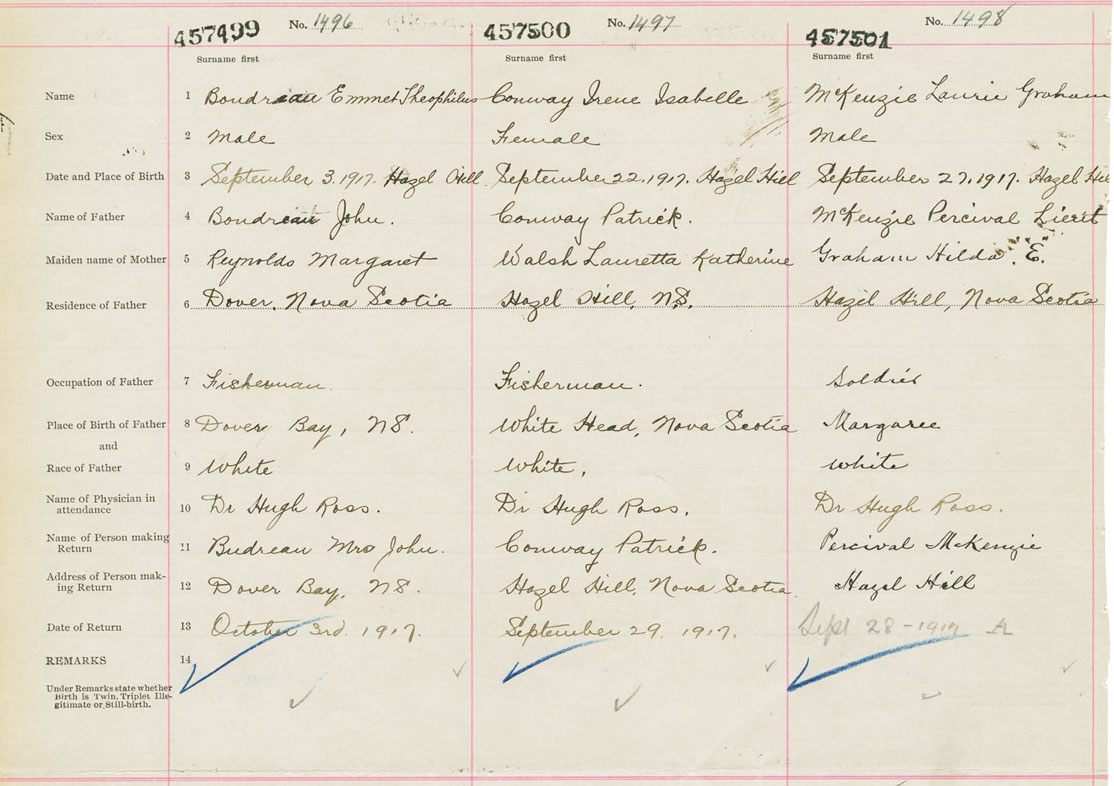 457499 No. 1496 457500 No. 1497 457501 No. 1498
Surname first Surname first Surname first
Name 1 Boudreau Emmet Theophilus Conway Irene Isabelle McKenzie Laurie Graham
Sex 2 Male Female Male
Date and Place of Birth 3 September 3. 1917. Hazel Hill September 22. 1917. Hazel Hill September 27. 1917. Hazel Hill
Name of Father 4 Boudreau John. Conway Patrick. McKenzie Percival
Maiden name of Mother 5 Reynolds Margaret Walsh Lauretta Katherine Graham Hilda E.
Residence of Father 6 Dover, Nova Scotia Hazel Hill, N.S. Hazel Hill, Nova Scotia
Occupation of Father 7 Fisherman. Fisherman. Soldier
Place of Birth of Father 8 Dover Bay, NS. White Head, Nova Scotia Margaree
and
Race of Father 9 White White, White
Name of Physician in
attendance 10 Dr Hugh Ross. Dr Hugh Ross. Dr Hugh Ross.
Name of Person making
Return 11 Budreau Mrs John. Conway Patrick. Percival McKenzie
Address of Person mak-
ing Return 12 Dover Bay, NS. Hazel Hill, Nova Scotia. Hazel Hill
Date of Return 13 October 3rd. 1917. September 29. 1917. Sept 28 - 1917
REMARKS 14
Under Remarks state whether
Birth is Twin, Triplet Ille-
gitimate or Still-birth.